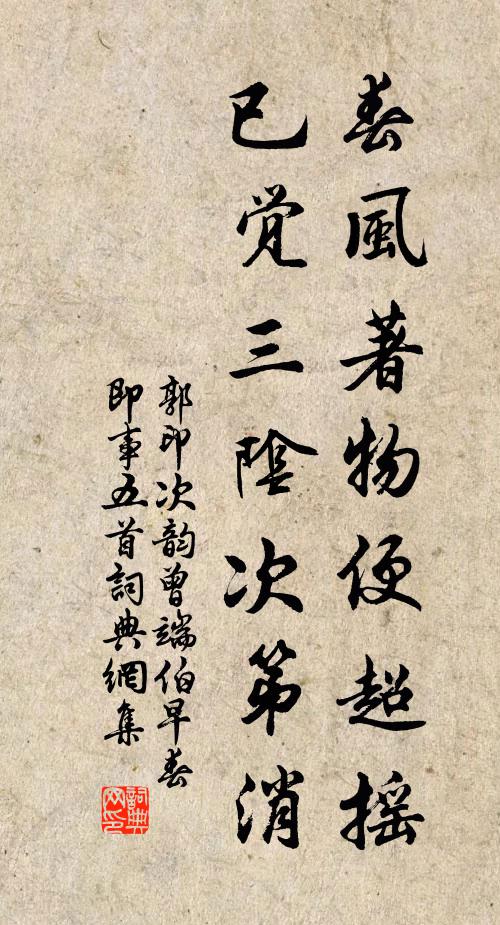 春風著物便超摇
已覚三陰次第消
郭印次韵曾端伯早春
即事五首詞典網集
詞典
网印